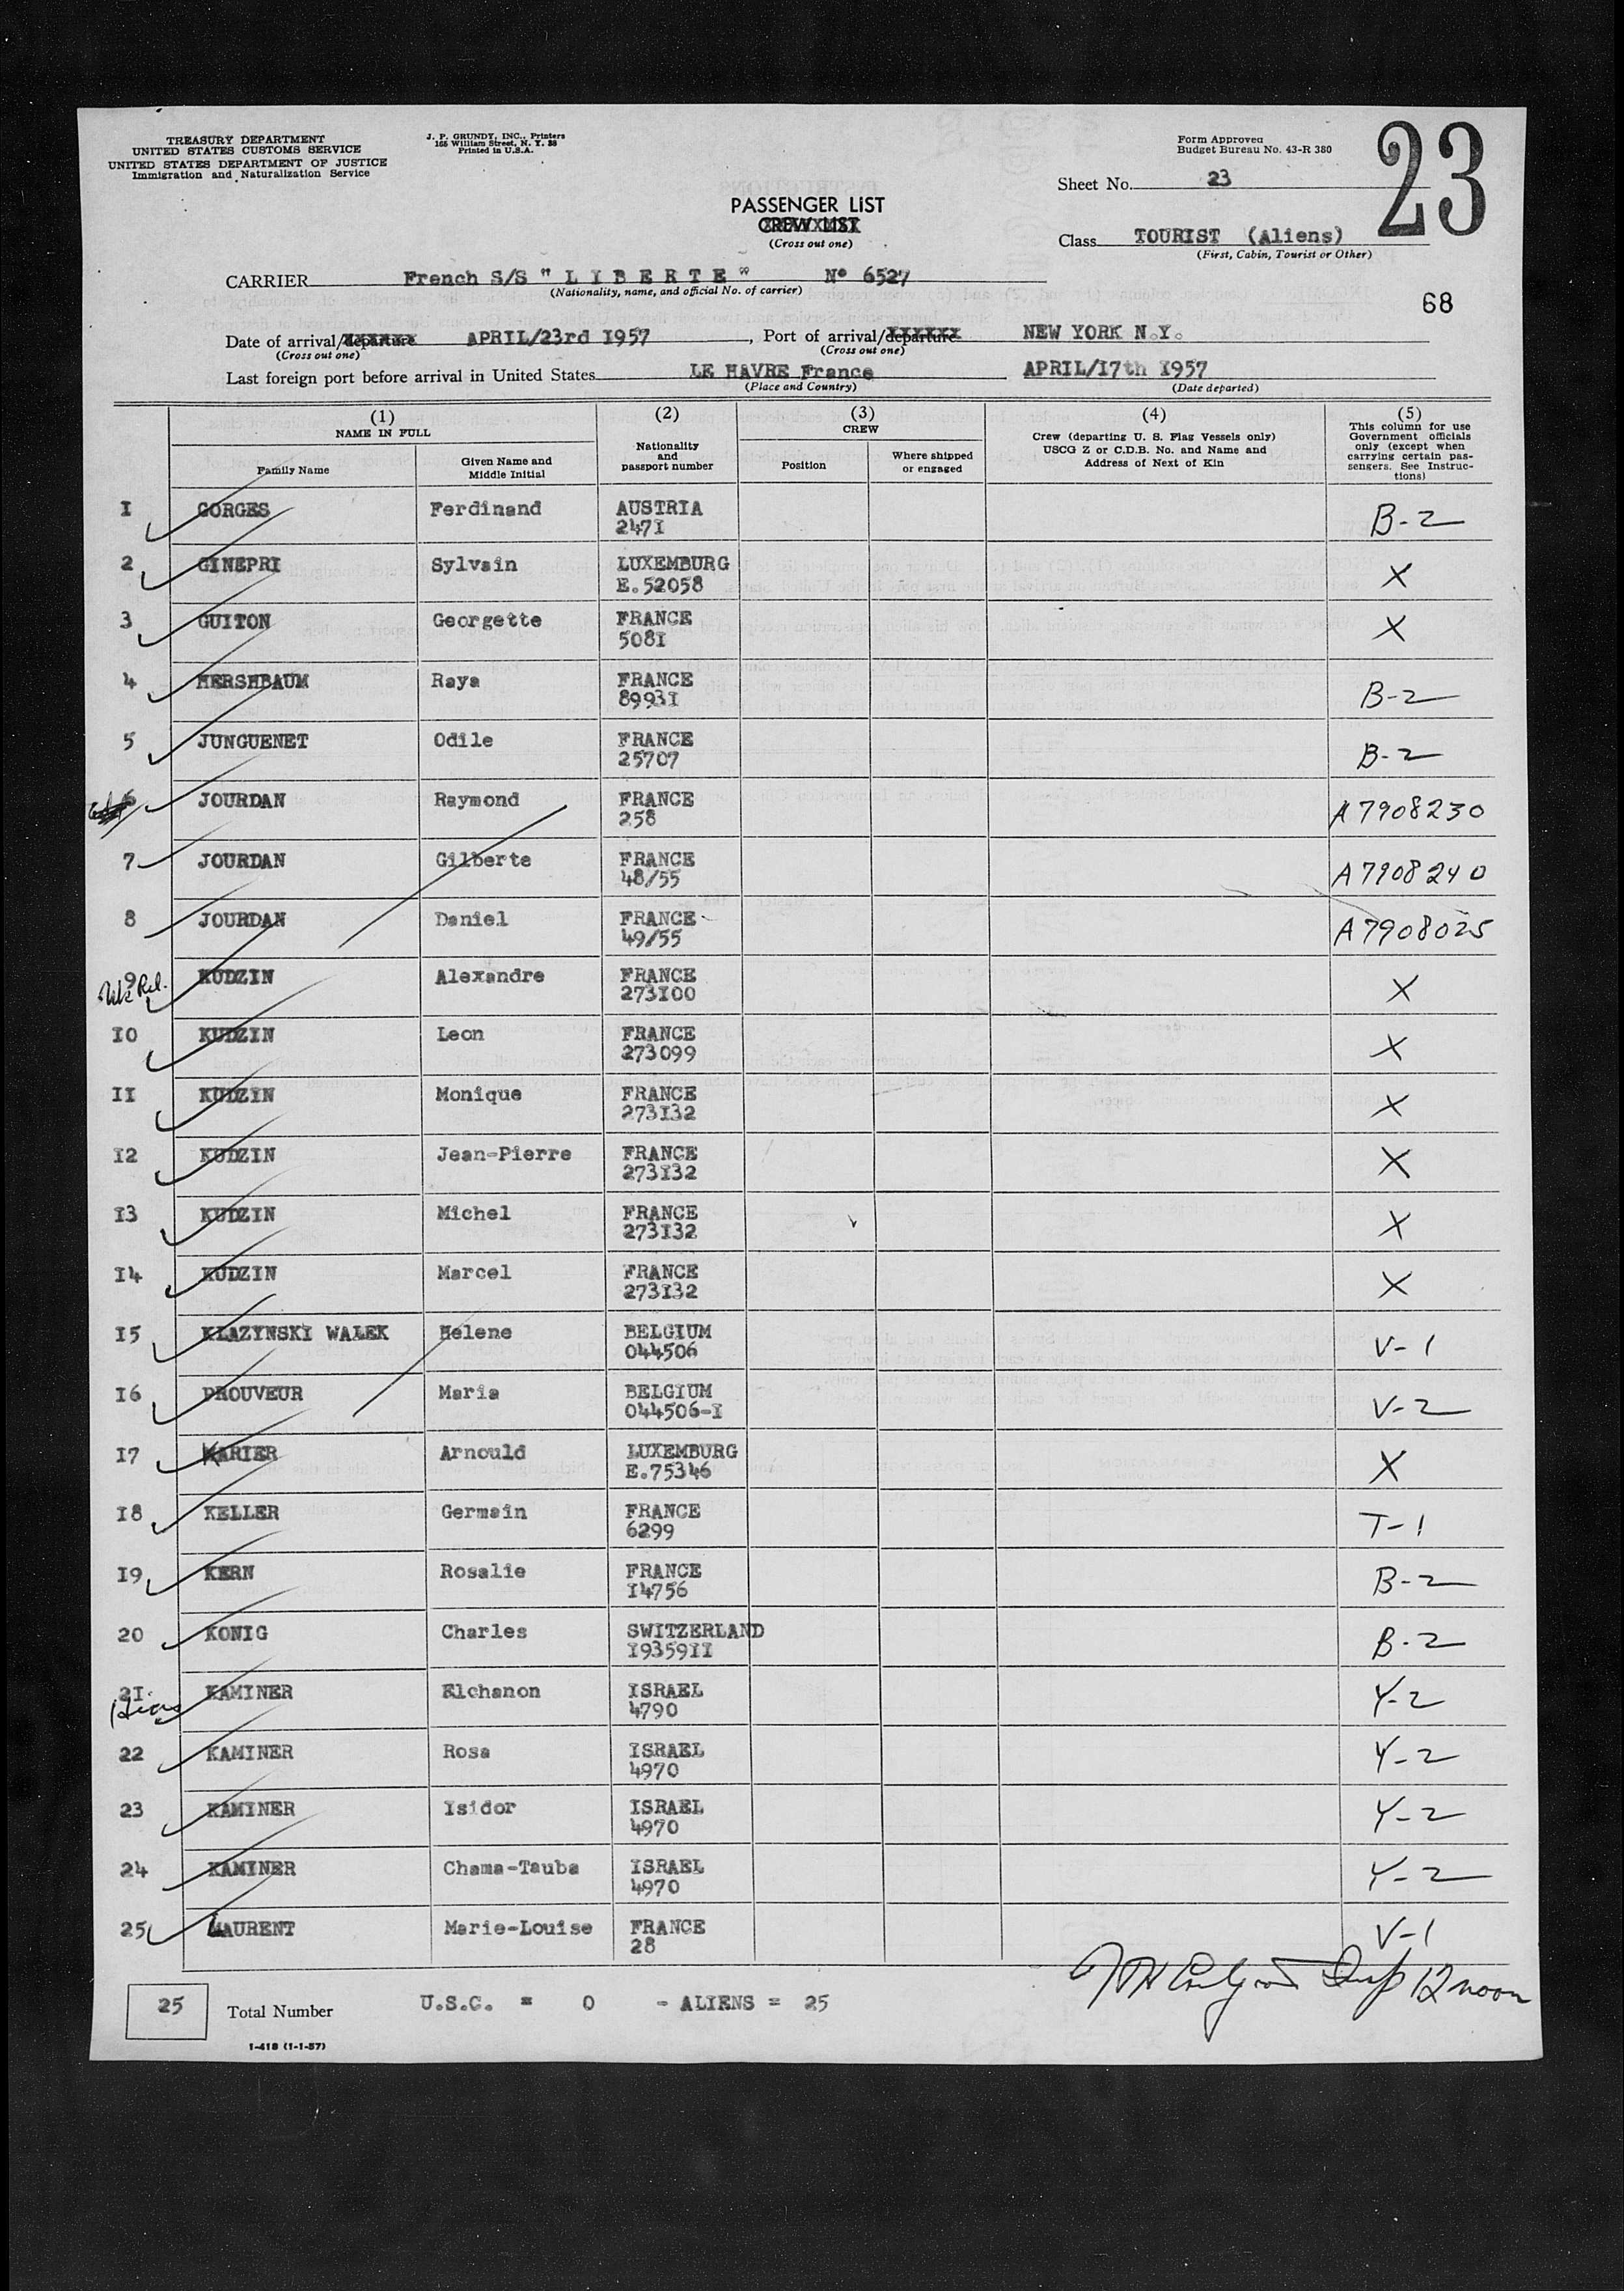 TREASURY DEPARTMENT
UNITED STATES CUSTOMS SERVICE
UNITED STATES DEPARTMENT OF JUSTICE
Immigration and Naturalization Service
J. P. GRUNDY, INC., Printers
165 William Street, N. Y. 38
Printed in U.S.A.
Form Approved
Budget Bureau No. 43-R 380
23
Sheet No. 23
PASSENGER LIST
CREW LIST
(Cross out one)
Class TOURIST (Aliens)
(First, Cabin, Tourist or Other)
CARRIER French S/S " L I B E R T E " Nº 6527
(Nationality, name, and official No. of carrier)
68
Date of arrival/departure APRIL/23rd I957, Port of arrival/departure NEW YORK N.Y.
(Cross out one) (Cross out one)
Last foreign port before arrival in United States LE HAVRE France APRIL/I7th I957
(Place and Country) (Date departed)
(1) (2) (3) (4) (5)
NAME IN FULL
Family Name
Given Name and Middle Initial
Nationality and passport number
CREW
Position
Where shipped or engaged
Crew (departing U. S. Flag Vessels only)
USCG Z or C.D.B. No. and Name and
Address of Next of Kin
This column for use
Government officials
only (except when
carrying certain pas-
sengers. See Instruc-
tions)
I GORGES Ferdinand AUSTRIA B-2
247I
2 GINEPRI Sylvain LUXEMBURG X
E.52058
3 GUITON Georgette FRANCE X
508I
4 HERSHBAUM Raya FRANCE B-2
8993I
5 JUNGUENET Odile FRANCE B-2
25707
6 JOURDAN Raymond FRANCE A7908230
258
7 JOURDAN Gilberte FRANCE A7908240
48/55
8 JOURDAN Daniel FRANCE A7908025
49/55
9 KUDZIN Alexandre FRANCE X
273I00
I0 KUDZIN Leon FRANCE X
273099
II KUDZIN Monique FRANCE X
273I32
I2 KUDZIN Jean-Pierre FRANCE X
273I32
I3 KUDZIN Michel FRANCE X
273I32
I4 KUDZIN Marcel FRANCE X
273I32
I5 KLAZYNSKI WALEK Helene BELGIUM V-1
044506
I6 PROUVEUR Maria BELGIUM V-2
044506-I
I7 KARIER Arnould LUXEMBURG X
E.75346
I8 KELLER Germain FRANCE T-1
6299
I9 KERN Rosalie FRANCE B-2
I4756
20 KONIG Charles SWITZERLAND B-2
I9359II
2I KAMINER Elchanon ISRAEL Y-2
4790
22 KAMINER Rosa ISRAEL Y-2
4970
23 KAMINER Isidor ISRAEL Y-2
4970
24 KAMINER Chama-Tauba ISRAEL Y-2
4970
25 LAURENT Marie-Louise FRANCE V-1
28
12 noon
25 Total Number U.S.C. = 0 - ALIENS = 25
1-418 (1-1-57)